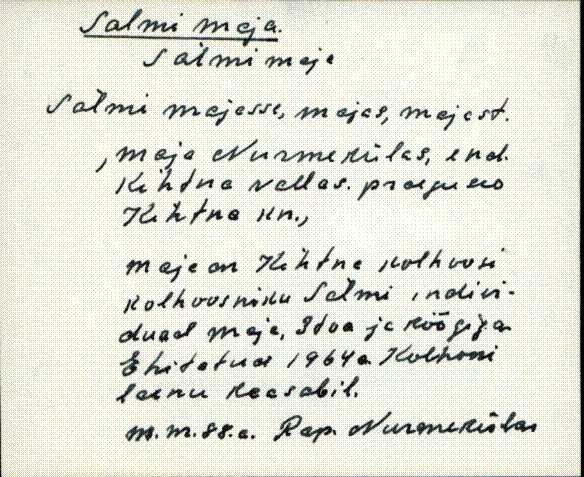 Salmi maja.
Salmi maja
Salmi majasse, majas, majast.
, maja Nurmekülas, end.
Kehtna vallas. praegu
Kehtna kn.,
maja on Kehtna kolhoosi
kolhoosniku Salmi indivi-
duaal maja, 3 toa ja köögiga
Ehitatud 1964 a. Kolhoosi
laenu kaasabil.
m.m.88.a. Rap. Nurmekülas